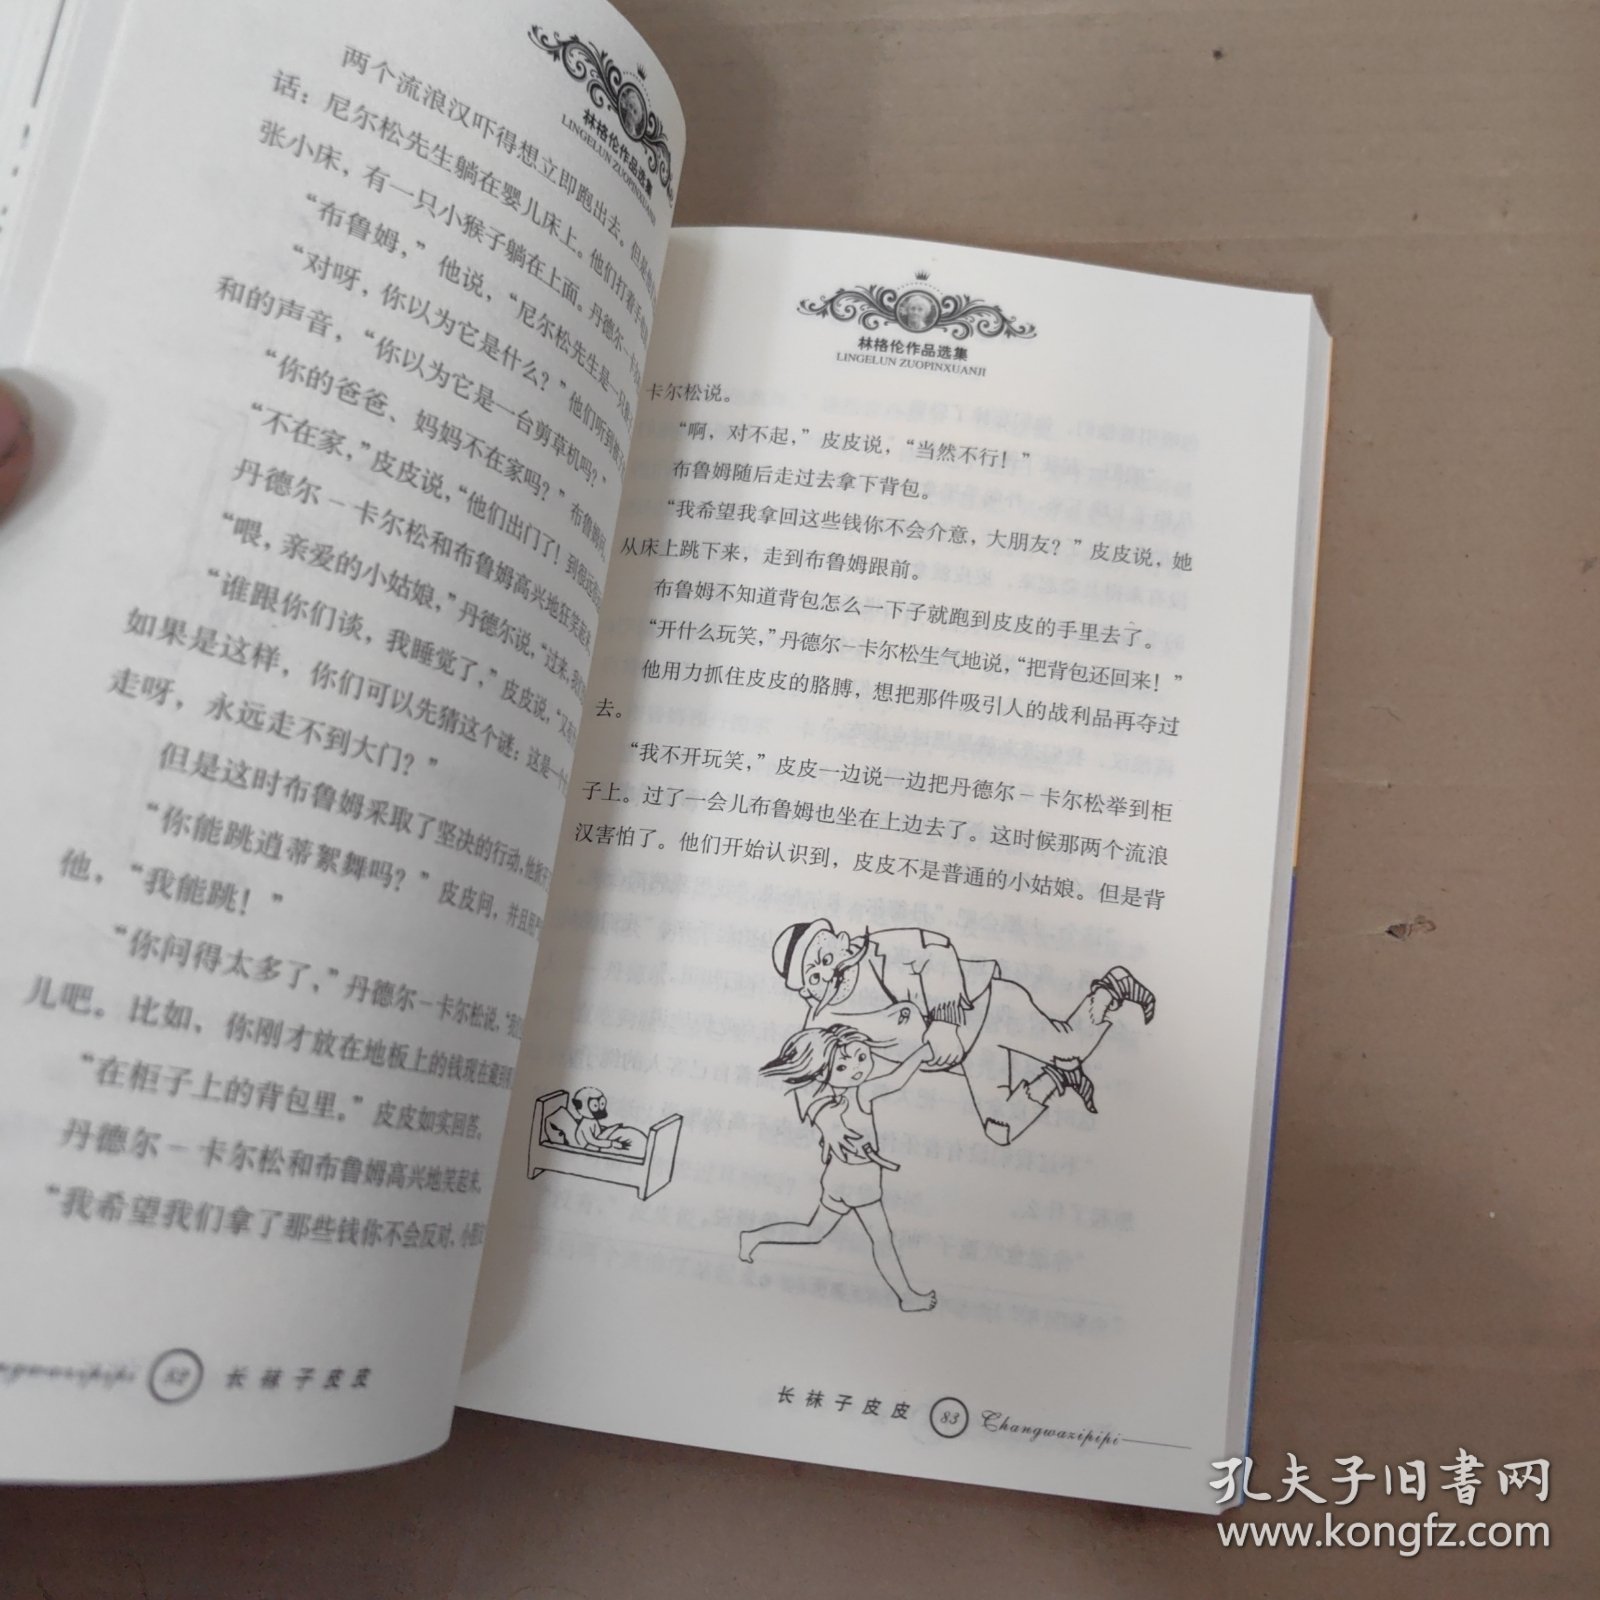 林格伦作品选集
LINGELUN ZUOPINXUANJI
两个流浪汉吓得想立即跑出去。但是他
话：尼尔松先生躺在婴儿床上。他们打着手电
张小床，有一只小猴子躺在上面。丹德尔－卡尔
“布鲁姆，”他说，“尼尔松先生是一只
“对呀，你以为它是什么？”他们听到
和的声音，“你以为它是一台剪草机吗？”
“你的爸爸、妈妈不在家吗？”布鲁姆问。
“不在家，”皮皮说，“他们出门了！到很远
丹德尔－卡尔松和布鲁姆高兴地狂笑起来
“喂，亲爱的小姑娘，”丹德尔说，“过来，我
“谁跟你们谈，我睡觉了，”皮皮说，“又
如果是这样，你们可以先猜这个谜：这是一个
走呀，永远走不到大门？”
但是这时布鲁姆采取了坚决的行动，他
“你能跳逍蒂絮舞吗？”皮皮问，并且
他，“我能跳！”
“你问得太多了，”丹德尔－卡尔松说，“我
儿吧。比如，你刚才放在地板上的钱现在藏到
“在柜子上的背包里。”皮皮如实回答。
丹德尔－卡尔松和布鲁姆高兴地笑起来。
“我希望我们拿了那些钱你不会反对，小
82 长袜子皮皮
林格伦作品选集
LINGELUN ZUOPINXUANJI
卡尔松说。
“啊，对不起，”皮皮说，“当然不行！”
布鲁姆随后走过去拿下背包。
“我希望我拿回这些钱你不会介意，大朋友？”皮皮说，她
从床上跳下来，走到布鲁姆跟前。
布鲁姆不知道背包怎么一下子就跑到皮皮的手里去了。
“开什么玩笑，”丹德尔－卡尔松生气地说，“把背包还回来！”
他用力抓住皮皮的胳膊，想把那件吸引人的战利品再夺过
去。
“我不开玩笑，”皮皮一边说一边把丹德尔－卡尔松举到柜
子上。过了一会儿布鲁姆也坐在上边去了。这时候那两个流浪
汉害怕了。他们开始认识到，皮皮不是普通的小姑娘。但是背
长袜子皮皮 83 Changwazipipi
孔夫子旧书网
www.kongfz.com